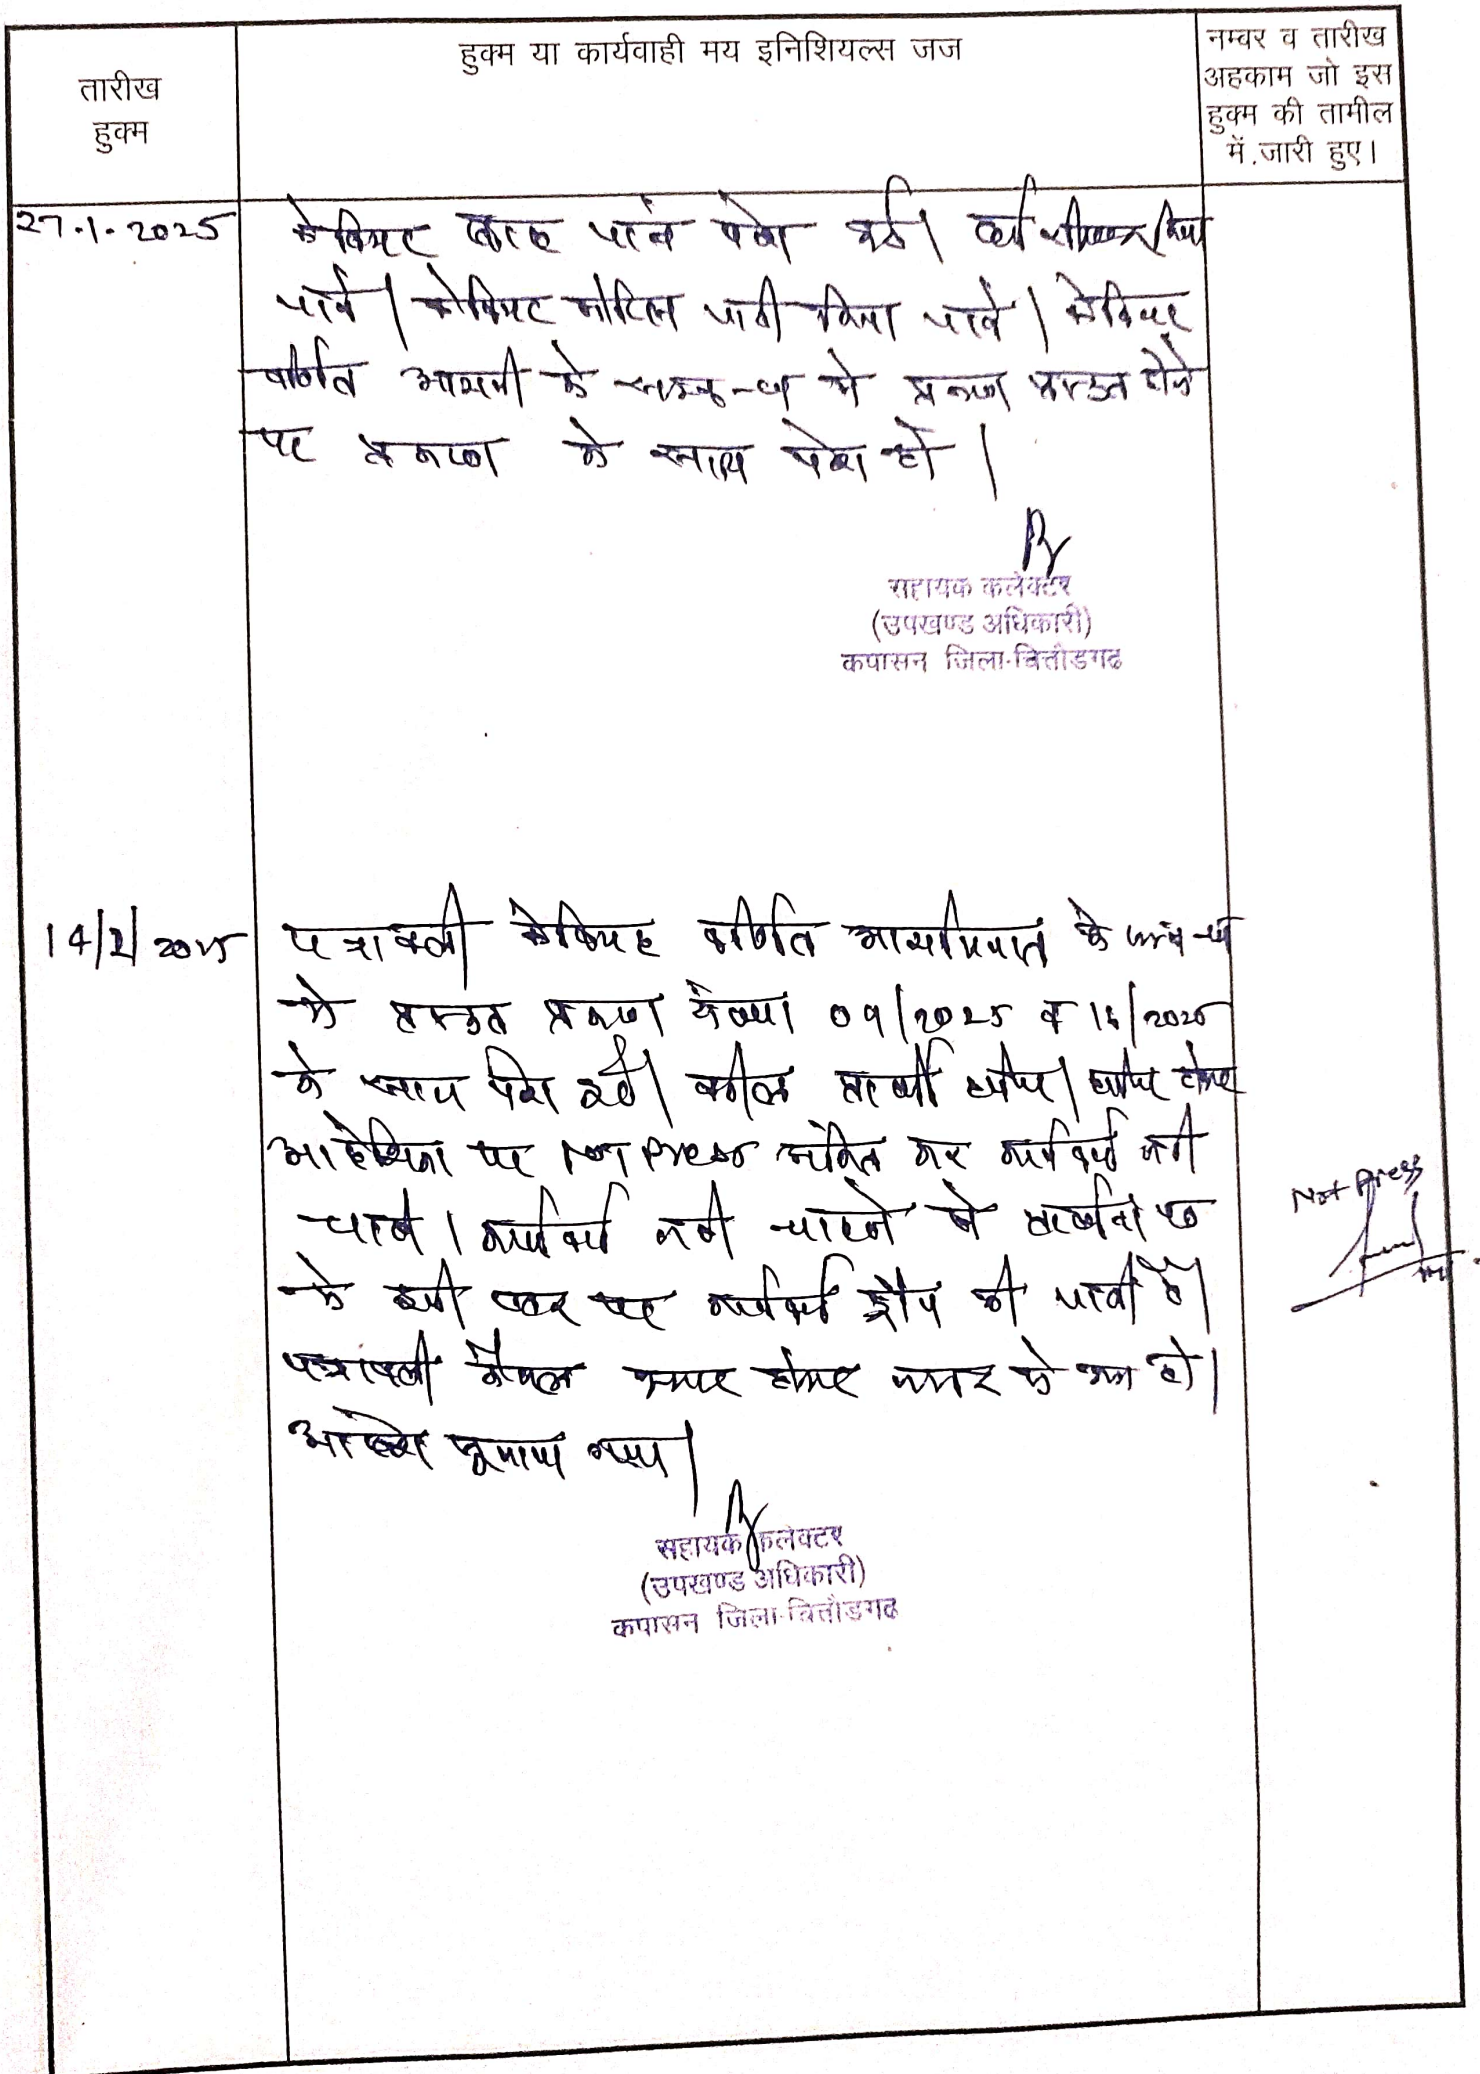 तारीख
हुक्म
हुक्म या कार्यवाही मय इनिशियल्स जज
नम्वर व तारीख
अहकाम जो इस
हुक्म की तामील
में जारी हुए।
27.1.2025
केवियट बाद जांच पेश हुई। दर्ज किया
जावे। केवियट नोटिस जारी किया जावे। केवियट
वर्णित आराजी के सम्बन्ध मे प्रकरण प्रस्तुत होने
पर प्रकरण के साथ पेश हो।
सहायक कलेक्टर
(उपखण्ड अधिकारी)
कपासन जिला-चित्तौडगढ
14/2/2025
पत्रावली केवियट वर्णित के सम्बन्ध
मे प्रस्तुत प्रकरण संख्या 09/2025 व 16/2025
के साथ पेश हुई। वकील प्रार्थी उप०। उप० होकर
पर Not Press अंकित कर कार्यवाही नही
चाही। कार्यवाही नही चाहने से प्रार्थना पत्र
के इसी स्तर पर कार्यवाही ड्रॉप की जाती है।
पत्रावली फैसल शुमार होकर नम्बर से कम हो।
Not Press
सहायक कलेक्टर
(उपखण्ड अधिकारी)
कपासन जिला-चित्तौडगढ